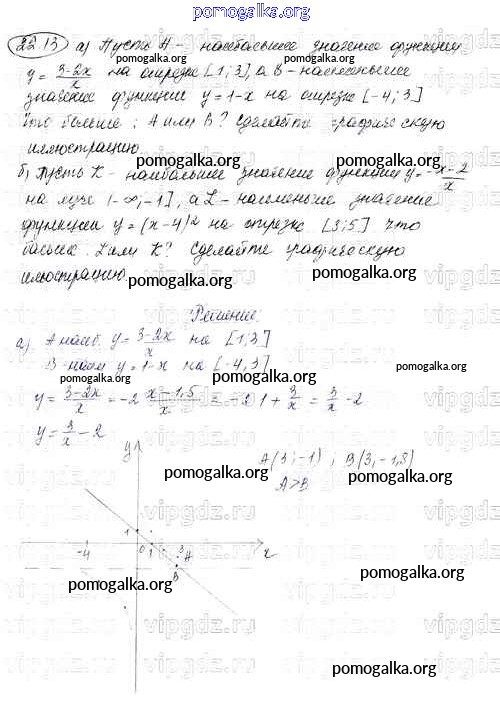 pomogalka.org
22.13 а) Пусть А - наибольшее значение функции
y = 3-2x/x на отрезке [1;3], а В - наименьшее
значение функции y=1-x на отрезке [-4;3]
Что больше: А или В? Сделайте графическую
иллюстрацию.
pomogalka.org pomogalka.org
б) Пусть К - наибольшее значение функции y= -x-2/x
на луче (-∞;-1], а L - наименьшее значение
функции y=(x-4)2 на отрезке [3;5] Что
больше: L или К? Сделайте графическую
иллюстрацию.
pomogalka.org pomogalka.org
Решение
а) А наиб. y= 3-2x/x на [1;3]
В-наим y=1-x на [-4,3]
pomogalka.org pomogalka.org pomogalka.org
y= 3-2x/x = -2 x-1,5/x = -2 1 + 3/x = 3/x -2
y= 3/x - 2
y
A(3;-1) ; B(3,-1,8)
pomogalka.org pomogalka.org
A>B
1
-4 0 1 3 A x
B
pomogalka.org pomogalka.org
pomogalka.org
vipgdz.ru